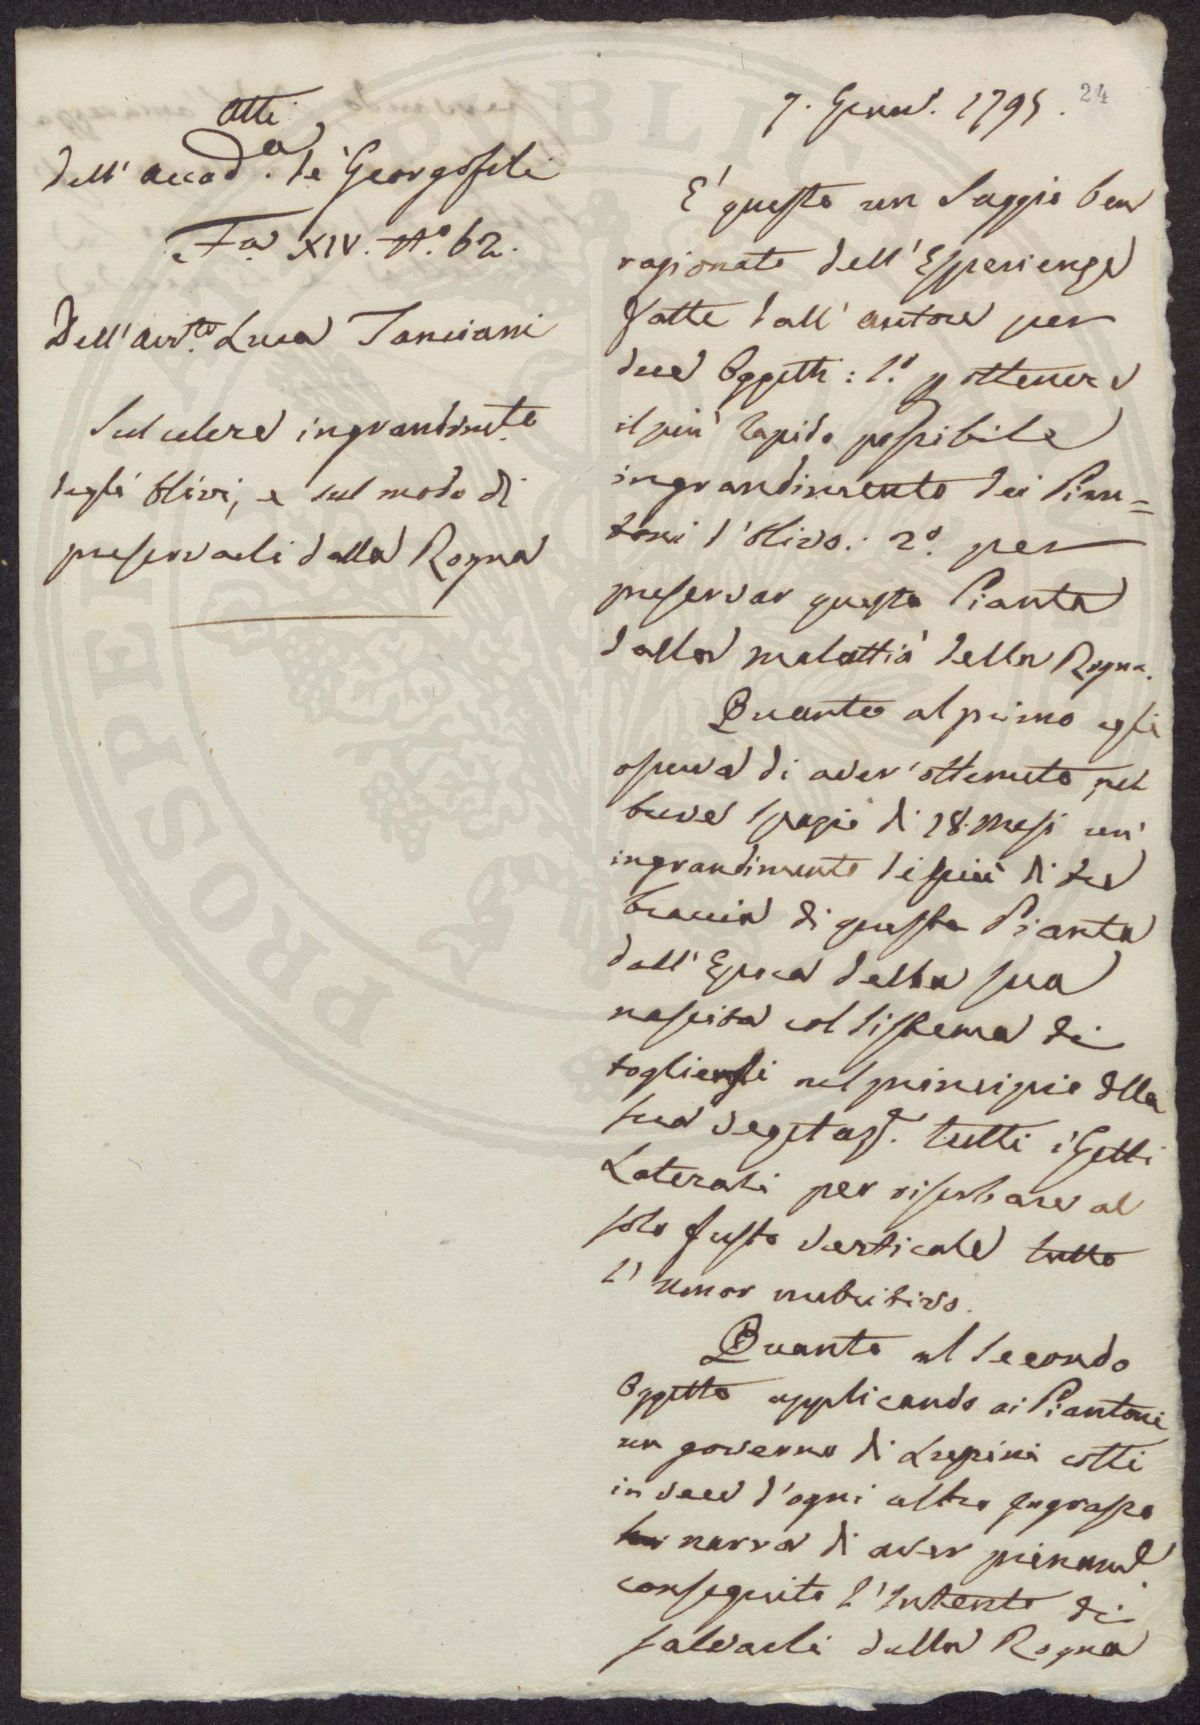 Atti
dell' Accad.a de' Georgofili
F.a XIV. N.o 62.
Dell' Avv.to Luca
Sul celere ingrandim.to
degli Olivi, e sul modo di
preservarli dalla Rogna
24
7. Genn.o 1795.
E' questo un Saggio ben
ragionato dell' Esperienze
fatte dall' autore per
due Oggetti: 1.o p ottenere
il piu' rapido possibile
ingrandimento dei Pian=
toni d'Olivo: 2.o per
preservar questa Pianta
dalla malattia della Rogna.
Quanto al primo egli
di aver' ottenuto nel
breve spazio di 18. Mesi un'
ingrandimento di piu' di due
braccia di questa Pianta
dall' Epoca della sua
nascita col Sistema di
togliersi nel principio della
sua vegetaz.e tutti i Getti
Laterali per riserbare al
solo fusto verticale tutto
l' umor nutritivo.
Quanto al Secondo
Oggetto applicando ai Piantoni
un governo di Lupini cotti
in vece d'ogni altro Ingrasso
narra di aver pienam.e
conseguito l' Intento di
salvarli dalla Rogna
PUBLIC
PROSPERI